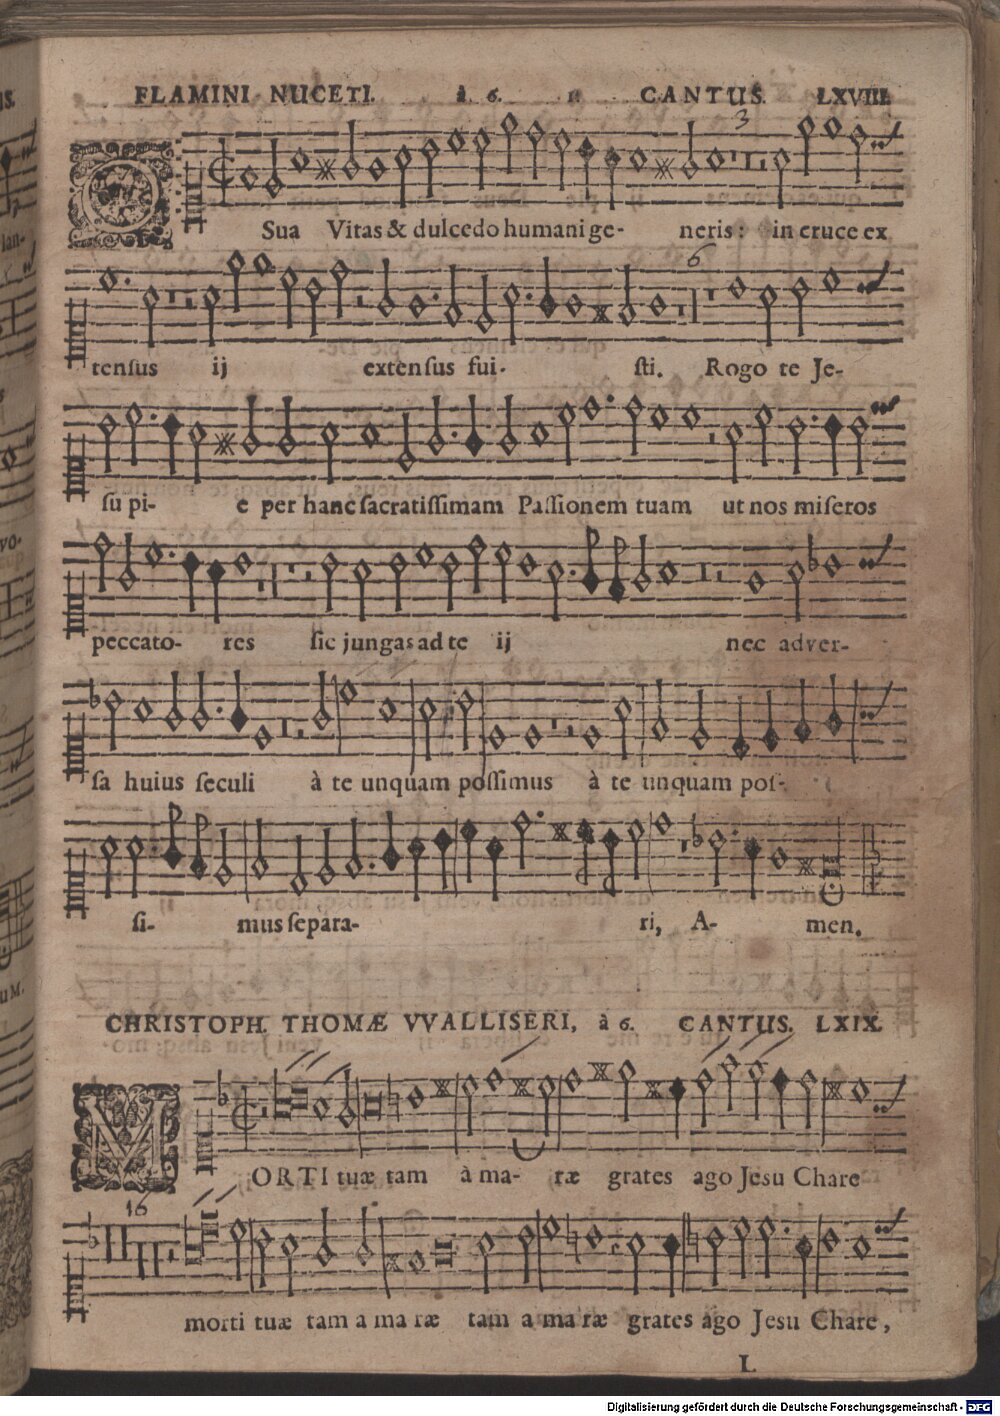 FLAMINI NUCETI. à 6. CANTUS. LXVIII.
3
O Sua Vitas & dulcedo humani ge- neris: in cruce ex
6
tensus ij extensus fui- sti. Rogo te Je-
su pi- e per hanc sacratissimam Passionem tuam ut nos miseros
peccato- res sic jungas ad te ij nec adver-
sa huius seculi à te unquam possimus à te unquam pos-
si- mus separa- ri, A- men.
CHRISTOPH. THOMÆ VVALLISERI, à 6. CANTUS. LXIX.
MORTI tuæ tam à ma- ræ grates ago Jesu Chare
16
morti tuæ tam a ma ræ tam a ma ræ grates ago Jesu Chare,
L
Digitalisierung gefördert durch die Deutsche Forschungsgemeinschaft - DFG